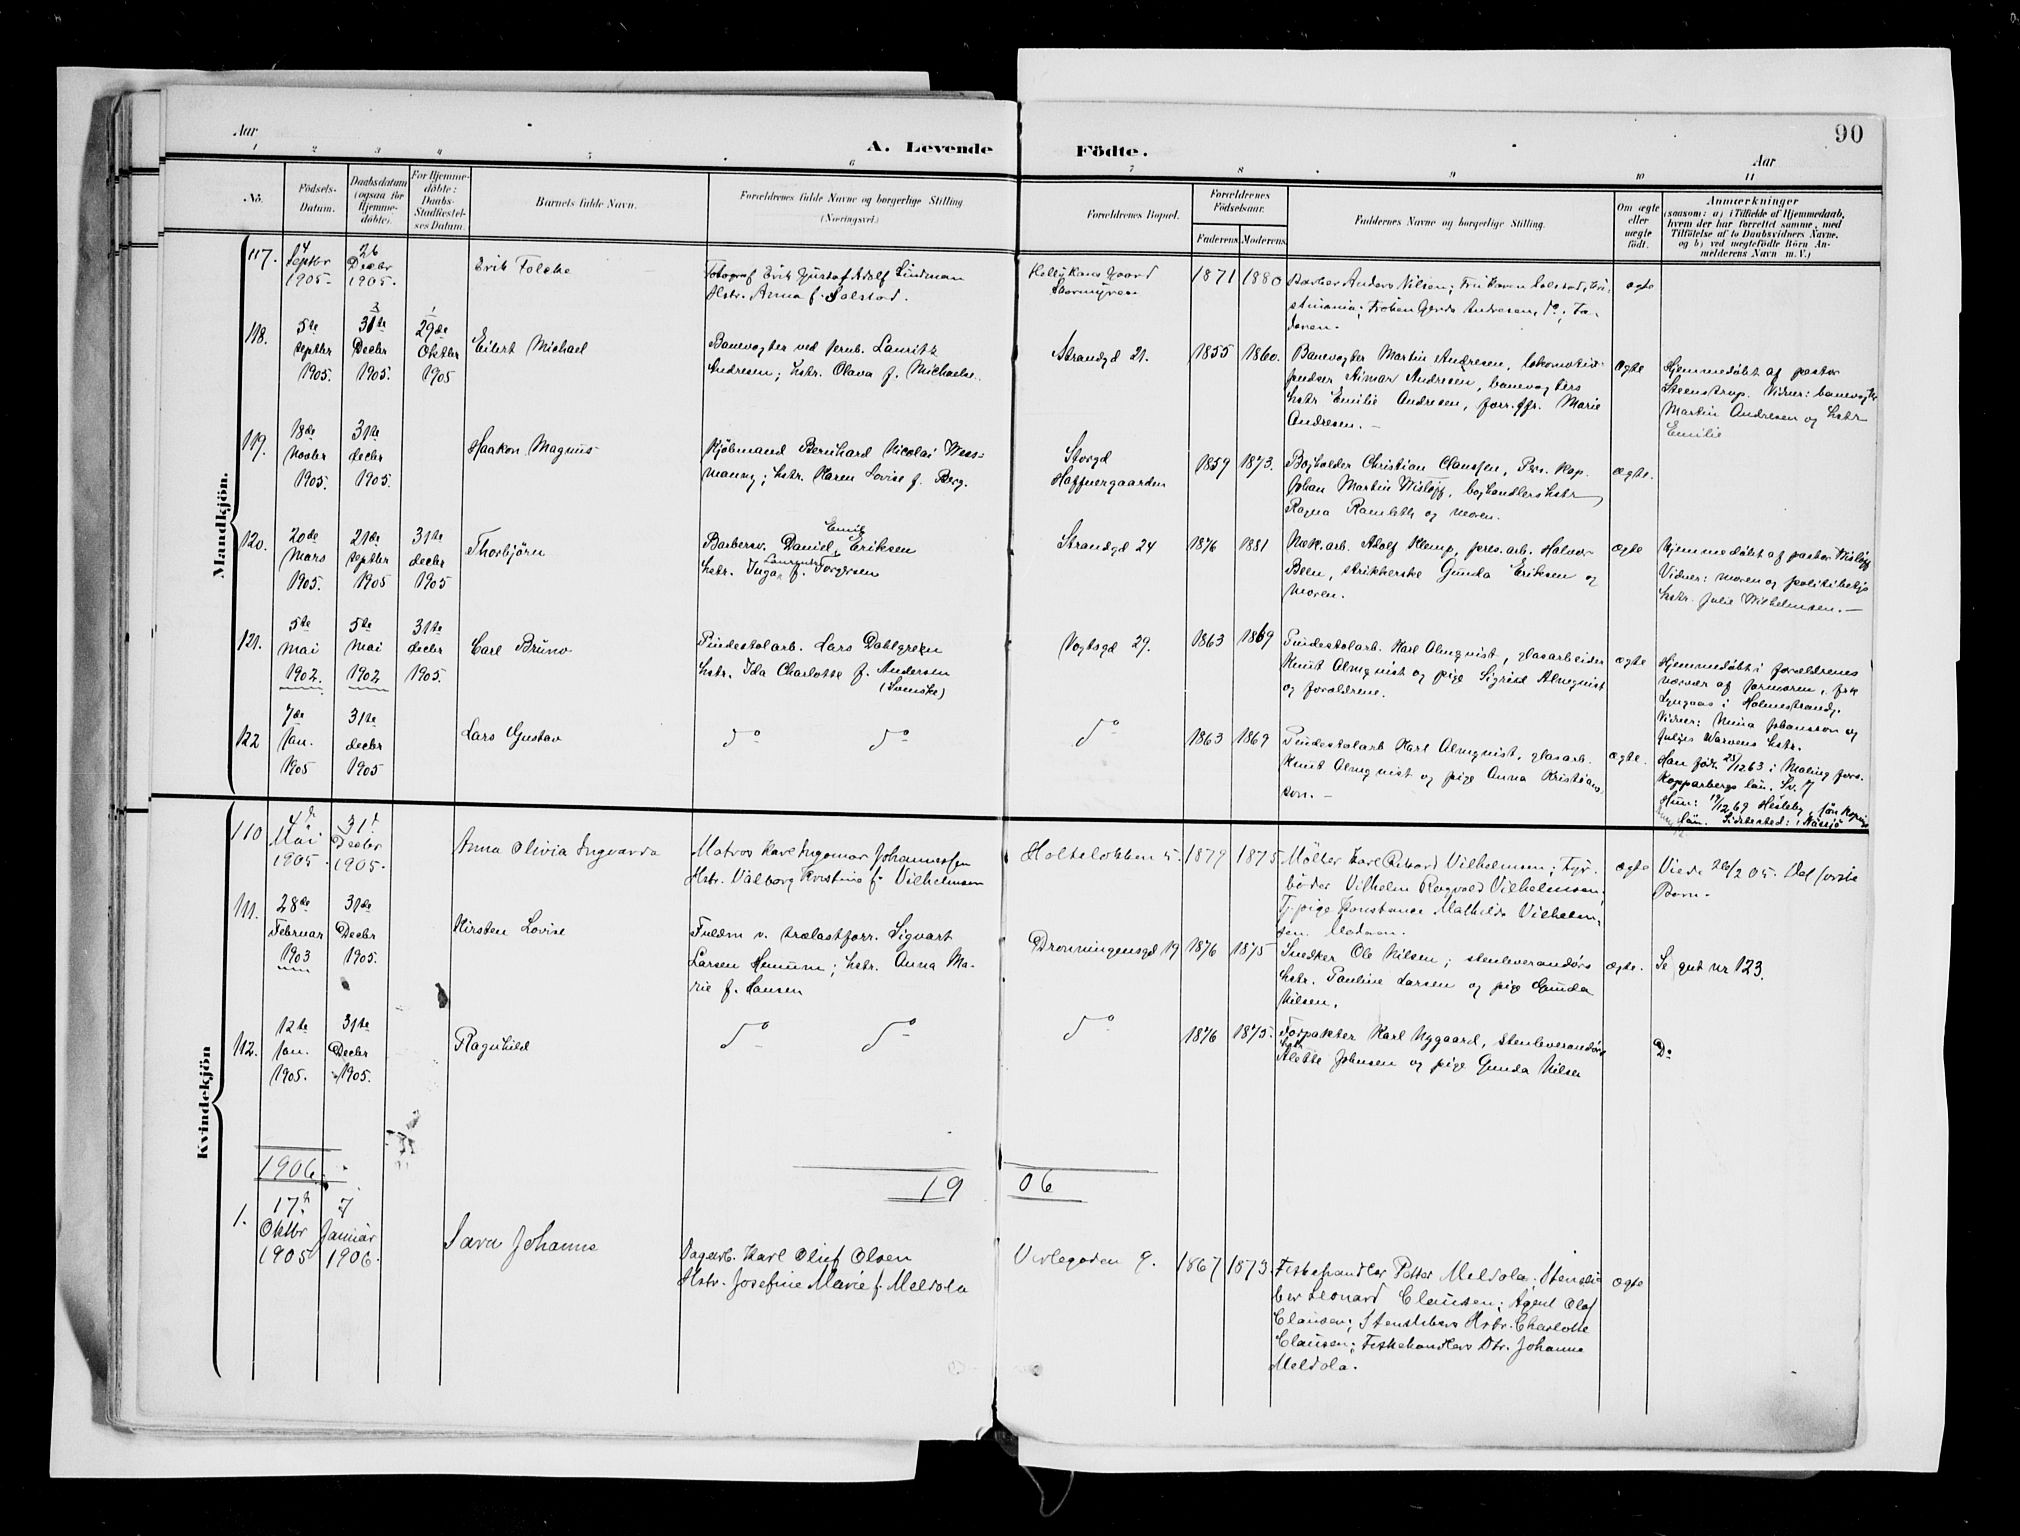 90
Aar
A. Levende
Födte.
Aar
1 2 3 4 5 6 7 8 9 10 11
No.
Födsels-
Datum.
Daabsdatum
(ogsaa for
Hjemme-
döbte).
For Hjemme-
döbte:
Daabs-
Stadfæstel-
ses Datum.
Barnets fulde Navn.
Forældrenes fulde Navne og borgerlige Stilling
(Næringsvei.)
Forældrenes Bopæl.
Forældrenes
Födselsaar.
Faderens Moderens
Faddernes Navne og borgerlige Stilling.
Om ægte
eller
uægte
födt.
Anmærkninger
(saasom: a) i Tilfælde af Hjemmedaab,
hvem der har forrettet samme, med
Tilföielse af to Daabsvidners Navne,
og b) ved uægtefödte Börn An-
melderens Navn m.V.)
Mandkjön.
117.
4
Septbr
1905.
26
Decbr
1905.
Erik Folche
Fotograf Erik Gustaf Adolf Lindman
Hstr. Anna f. Solstad.
Stormyren
1871
1880
Barber Anders Nilsen; Frk Karen Solstad, Kri-
stiania; Fröken Gerda Andresen, do; Fa-
deren.
ægte
118.
5te
septbr
1905.
31te
Decbr
1905.
29de
Oktbr
1905
Eilert Michael
Banevogter ved jernb. Lauritz
Andresen; hstr. Olava f. Michaels.
Strandgd 21.
1855
1860.
Banevogter Martin Andresen, lokomotiv-
pudser Aimar Andresen, banevogters
hstr Emilie Andresen, forr.ffr. Marie
Andresen. -
ægte
Hjemmedøbt af pastor
Steenstrup. Vidner: banevogter
Martin Andresen og hstr
Emilie
119.
18de
Novbr
1905.
31te
decbr
1905.
Haakon Magnus
Kjöbmand Bernhard Nicolai Wess-
mann; hstr. Karen Lovise f. Berg.
Storgd
Haffnergaarden
1859
1873.
Bogholder Christian Claussen, Pers. kap.
Johan Martin Wisløff, boghandlers hstr
Ragna Ramleth og moren.
ægte.
120.
20de
Mars
1905
21de
septbr
1905
31te
decbr
1905
Thorbjörn
Barbersv. Daniel Emil Eriksen
hstr. Inga Laurentze f. Torgersen
Strandgd 24
1876
1881
Mek.arb. Adolf Klemp, pres.arb. Halvor
Been, strikkerske Gunda Eriksen og
moren.
ægte
Hjemmedöbt af pastor Wisløff
Vidner: moren og politibetj.
hstr. Julie Wilhelmsen. -
121.
5te
Mai
1902.
5te
Mai
1902
31te
decbr
1905.
Carl Bruno
Pindestolarb. Lars Dahlgren
hstr. Ida Charlotte f. Andersen
(Svenske)
Vogtsgd 29.
1863
1869
Pindestolarb. Karl Almqvist, glasarbeider
Knut Almqvist og pige Sigrid Almqvist
og forældrene.
ægte
Hjemmedöbt i forældrenes
nærvær af jormoren, frk
Lyngaas i Holmestrand.
Vidner: Mina Johansson og
Julius Warvens hstr.
122
7de
Jan.
1905
31te
decbr
1905
Lars Gustav
do do
do
1863
1869
Pindestolarb Karl Almqvist, glasarb.
Knut Almqvist og pige Anna Kristians-
son. -
ægte.
Han föd. 25/12 63 i Maling fors.
Kopparbergs län. Sv.
Hun: 19/12 69 Hesleby, Jön köpings
län. Sidstested: i Nässjö
Kvindekjön
110
4de
Mai
1905.
31t
Decbr
1905.
Anna Olivia Ingvarda
Matros Karl Ingomar Johannessen
Hstr. Valborg Kristine f. Vilhelmsen
Holteløkken 5.
1879
1875
Mölter Karl Rikard Vilhelmsen; Fyr-
böder Vilhelm Ragvald Vilhelmsen;
Tj. pige Konstance Mathilde Vilhelm-
sen. Moderen.
ægte
Viede 26/2 05. Del förste
Barn.
111.
28de
Februar
1903
31de
Decbr
1905.
Kirsten Lovise
Fuldm v. trælastforr. Sigvart
Larsen Hemum; hstr. Anna Ma-
rie f. Hansen
Dronningensgd 19
1876
1875
Snedker Ole Nilsen; stenleverandörs
hstr. Pauline Larsen og pige Gunda
Nilsen.
ægte.
Se gut nr 123.
112.
12te
Jan.
1905.
31te
Decbr
1905.
Ragnhild
do do
do
1876
1875.
Forpakter Karl Nygaard, stenleverandörs
hstr Alette Johnsen og pige Gunda Nilsen
Do
1906.
19 06
1.
17de
Oktbr
1905
7
Januar
1906.
Sara Johanne
Dagarb. Karl Oluf Olsen
Hstr. Josefine Marie f. Meldola
Verlegaden 9.
1867
1873.
Fiskehandler Petter Meldola; Stensli-
ber Leonard Clausen; Agent Olaf
Clausen; Stenslibers Hstr. Charlotte
Clausen; Fiskehandlers Dtr. Johanne
Meldola.
ægte